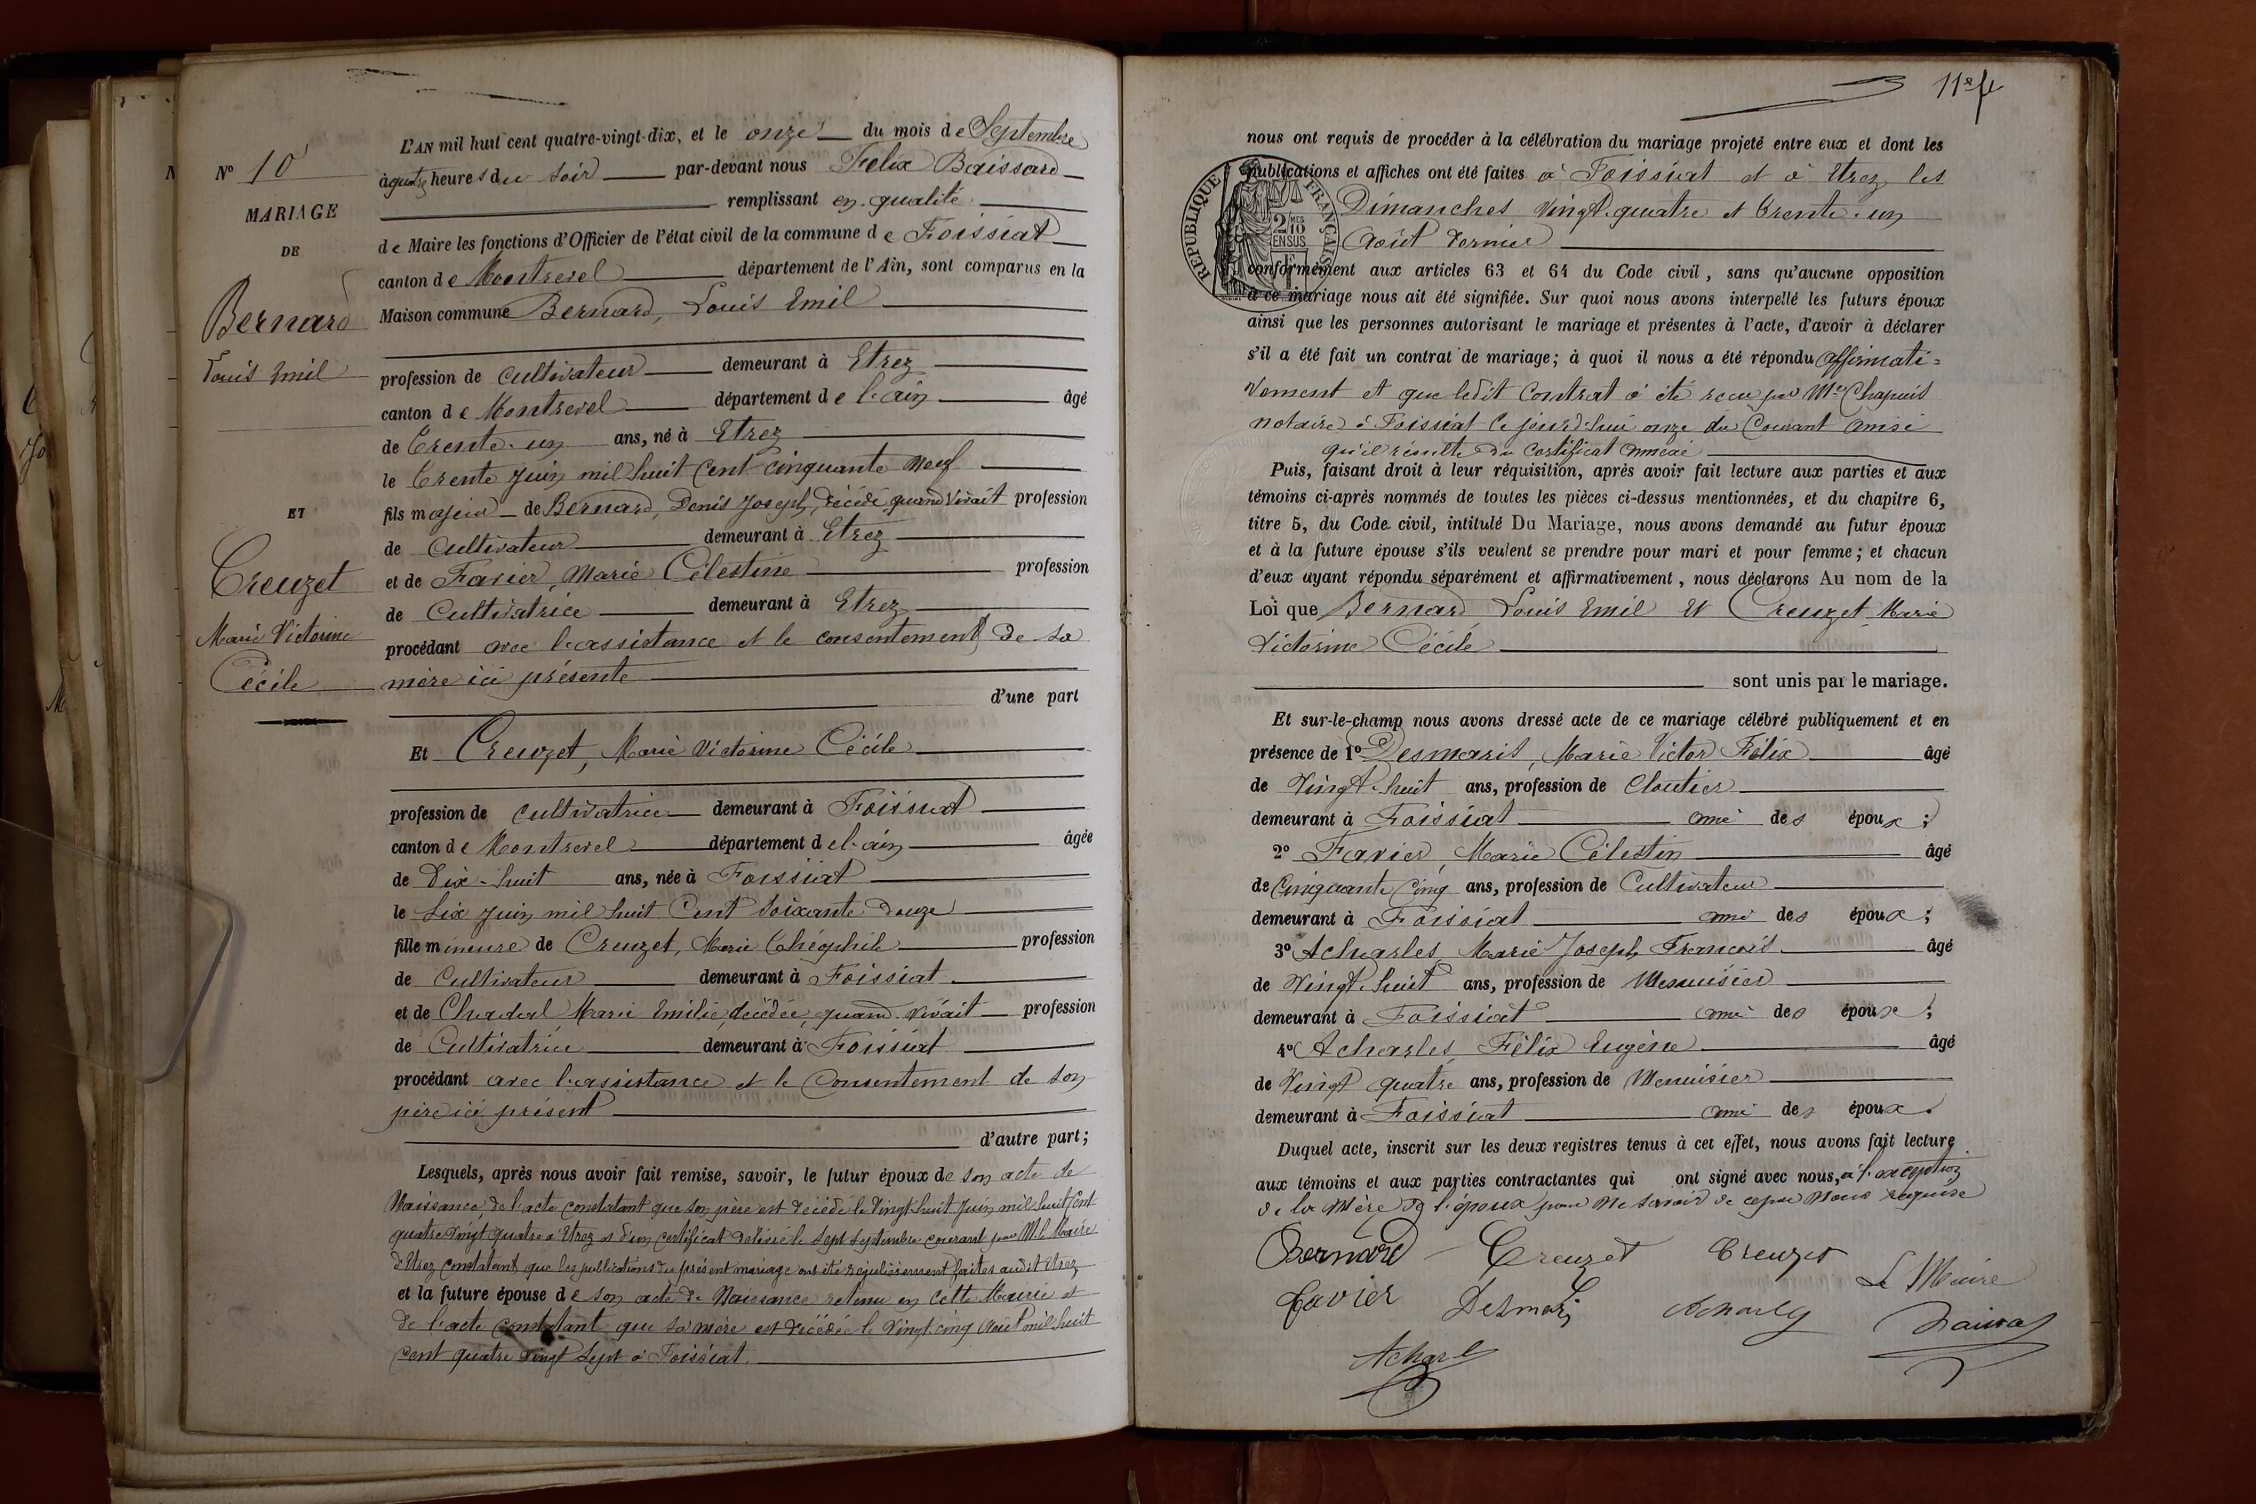 N° 10
MARIAGE
DE
Bernard
Louis Emil
ET
Creuzet
Marie Victorine
Cécile
L'AN mil huit cent quatre-vingt-dix, et le onze du mois de Septembre
à quatre heures du soir par-devant nous Félix Baissard
remplissant en qualité
de Maire les fonctions d'Officier de l'état civil de la commune de Foissiat
canton de Montrevel département de l'Ain, sont comparus en la
Maison commune Bernard, Louis Emil
profession de cultivateur demeurant à Etrez
canton de Montrevel département de l'ain âgé
de Trente-un ans, né à Etrez
le Trente Juin mil huit cent cinquante neuf
fils majeur de Bernard, Denis Joseph, décédé, quand vivait profession
de Cultivateur demeurant à Etrez
et de Favier, Marie Célestine profession
de Cultivatrice demeurant à Etrez
procédant avec l'assistance et le consentement de sa
mère ici présente
d'une part
Et Creuzet, Marie Victorine Cécile
profession de cultivatrice demeurant à Foissiat
canton de Montrevel département de l'ain âgée
de Dix-huit ans, née à Foissiat
le Six Juin mil huit Cent soixante-douze
fille mineure de Creuzet, Marie Théophile profession
de Cultivateur demeurant à Foissiat
et de Chadal Marie Emilie, décédée, quand vivait profession
de Cultivatrice demeurant à Foissiat
procédant avec l'assistance et le Consentement de son
père ici présent
d'autre part;
Lesquels, après nous avoir fait remise, savoir, le futur époux de son acte de
Naissance, de l'acte constatant que son père est décédé le Vingt huit Juin mil huit Cent
quatre vingt quatre à Etrez et d'un certificat délivré le sept septembre courant par M. le Maire
d'Etrez constatant que les publications du présent mariage ont été régulièrement faites audit Etrez
et la future épouse de son acte de Naissance retenu en cette Mairie et
de l'acte constatant que sa mère est décédée le Vingt cinq Août mil huit
cent quatre vingt sept à Foissiat.
11e f
nous ont requis de procéder à la célébration du mariage projeté entre eux et dont les
publications et affiches ont été faites à Foissiat et à Etrez, les
Dimanches vingt-quatre et trente-un
Août dernier
RÉPUBLIQUE FRANÇAISE
2/10 MES EN SUS
conformément aux articles 63 et 64 du Code civil, sans qu'aucune opposition
à ce mariage nous ait été signifiée. Sur quoi nous avons interpellé les futurs époux
ainsi que les personnes autorisant le mariage et présentes à l'acte, d'avoir à déclarer
s'il a été fait un contrat de mariage; à quoi il nous a été répondu affirmati=
vement et que ledit Contrat a été reçu par Me Chapuis
notaire à Foissiat ce jourd'hui onze du Courant ainsi
qu'il résulte du certificat annexé
Puis, faisant droit à leur réquisition, après avoir fait lecture aux parties et aux
témoins ci-après nommés de toutes les pièces ci-dessus mentionnées, et du chapitre 6,
titre 5, du Code civil, intitulé Du Mariage, nous avons demandé au futur époux
et à la future épouse s'ils veulent se prendre pour mari et pour femme; et chacun
d'eux ayant répondu séparément et affirmativement, nous déclarons Au nom de la
Loi que Bernard Louis Emil Et Creuzet Marie
Victorine Cécile
sont unis par le mariage.
Et sur-le-champ nous avons dressé acte de ce mariage célébré publiquement et en
présence de 1° Desmaris, Marie Victor Félix âgé
de Vingt huit ans, profession de Cloutier
demeurant à Foissiat ami des époux;
2° Favier, Marie Célestin âgé
de Cinquante Cinq ans, profession de Cultivateur
demeurant à Foissiat ami des époux;
3° Acharles, Marie Joseph François âgé
de Vingt huit ans, profession de Menuisier
demeurant à Foissiat ami des époux;
4° Acharles, Félix Eugène âgé
de Vingt quatre ans, profession de Menuisier
demeurant à Foissiat ami des époux.
Duquel acte, inscrit sur les deux registres tenus à cet effet, nous avons fait lecture
aux témoins et aux parties contractantes qui ont signé avec nous, à l'exception
de la Mère de l'époux pour ne savoir de ce par Nous requise
Bernard Creuzet Creuzet
Favier Desmaris Acharles Le Maire
Acharles Baissard